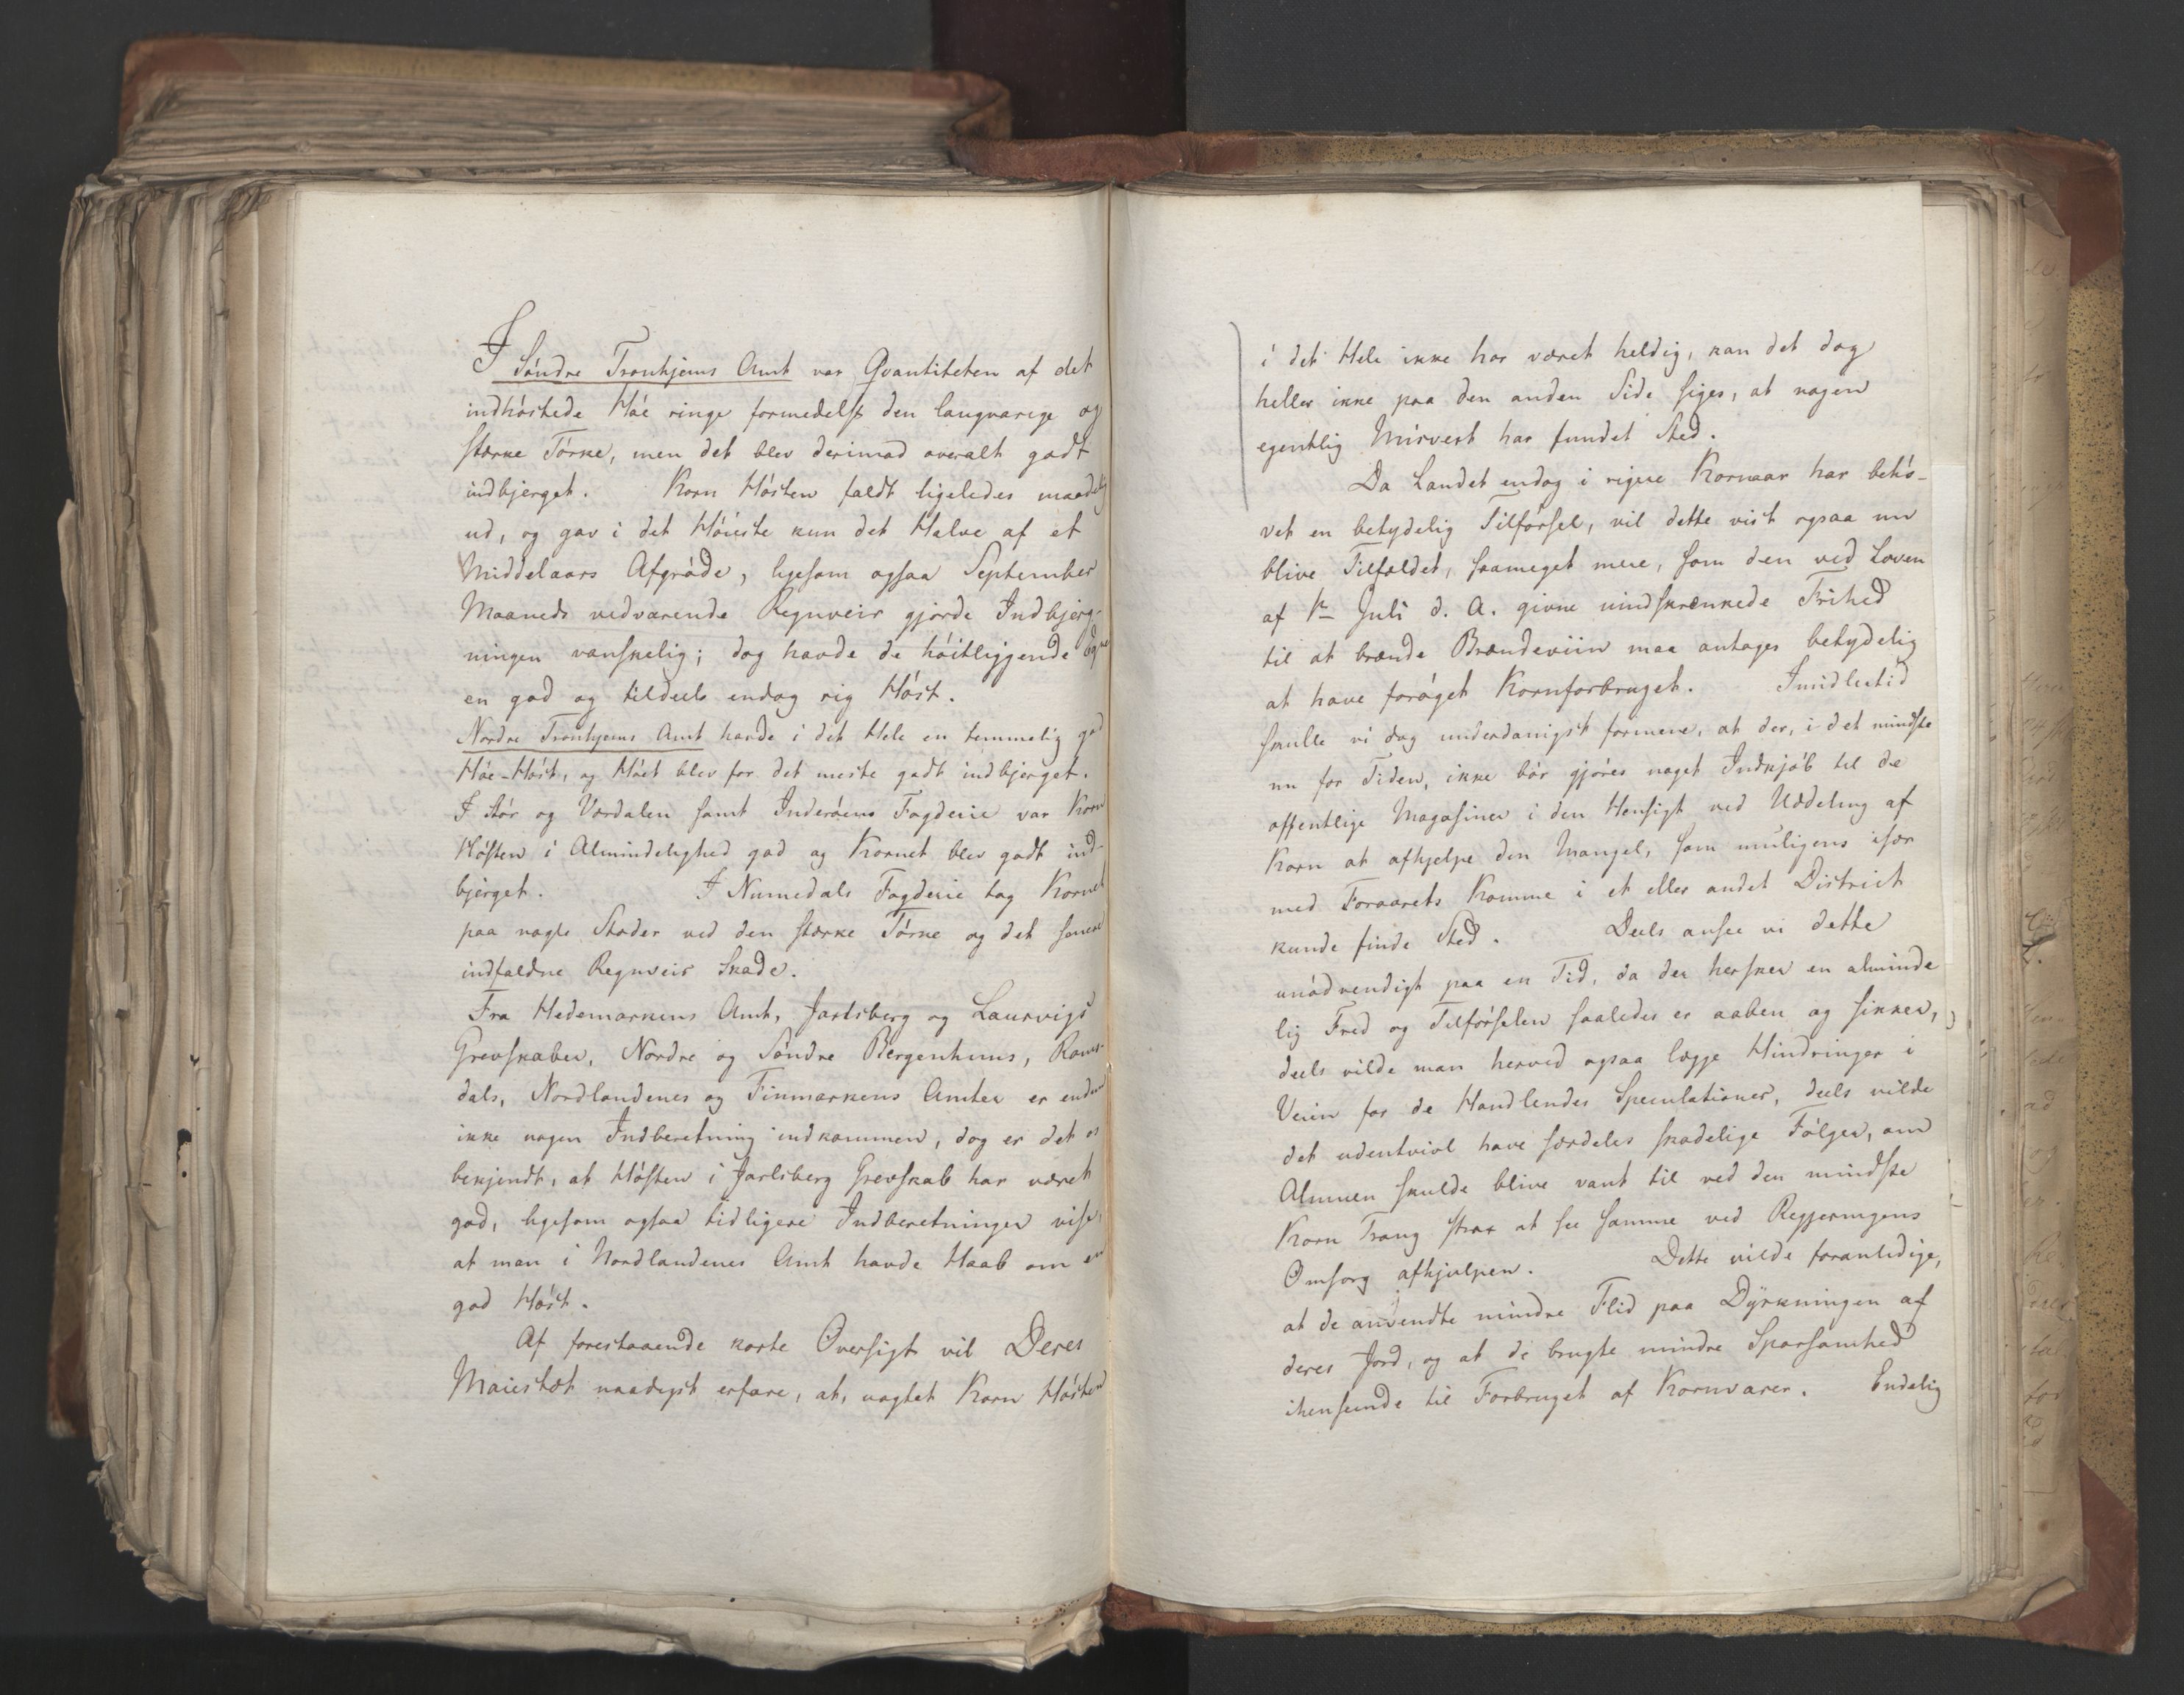 I Söndre Tronhjems Amt var Qvantiteten af det
indhöstede Höe ringe formedelst den langvarige og
stærke Törke, men det blev derimod overalt godt
indbjerget. Korn Hösten faldt ligeledes maadelig
ud, og gav i det Höieste kun det Halve af et
Middelaars Afgröde, ligesom ogsaa September
Maaneds vedvarende Regnveir gjorde Indbjerg-
ningen vanskelig; dog havde de höitliggende Egne
en god og tildeels endog rig Höst.
Nordre Tronhjems Amt havde i det Hele en temmelig god
Höe-Höst, og Höet blev for det meste godt indbjerget.
I Stör og Værdalen samt Inderöens Fogderie var Korn
Hösten i Almindelighed god og Kornet blev godt ind-
bjerget. I Numedals Fogderie tog Kornet
paa nogle Stæder ved den stærke Törke og det senere
indfaldne Regnveir Skade.
Fra Hedemarkens Amt, Jarlsberg og Laurvigs
Grevskaber, Nordre og Söndre Bergenhuus, Roms-
dals, Nordlandenes og Finmarkens Amter er endnu
ikke nogen Indberetning indkommen, dog er det os
bekjendt, at Hösten i Jarlsberg Grevskab har været
god, ligesom ogsaa tidligere Indberetninger vise,
at man i Nordlandenes Amt havde Haab om en
god Höst.
Af forestaaende korte Oversigt vil Deres
Majestæt naadigst erfare, at, uagtet Korn Hösten
i det Hele ikke har været heldig, kan det dog
heller ikke paa den anden Side siges, at nogen
egentlig Misvext har fundet Sted.
Da Landet endog i rigere Kornaar har behö-
vet en betydelig Tilförsel, vil dette vist ogsaa nu
blive Tilfældet, saameget mere, som den ved Loven
af 1ste Juli d. A. givne uindskrænkede Frihed
til at brænde Brændeviin maa antages betydelig
at have foröget Kornforbruget. Imidlertid
skulle vi dog underdanigst formene, at der, i det mindste
nu for Tiden, ikke bör gjöres noget Indkjöb til de
offentlige Magasiner i den Hensigt ved Uddeling af
Korn at afhjelpe den Mangel, som muligens især
med Foraarets Komme i et eller andet District
kunde finde Sted. Deels ansee vi dette
unödvendigt paa en Tid, da der hersker en alminde
lig Fred og Tilförselen saaledes er aaben og sikker,
deels vilde man herved ogsaa lægge Hindringer i
Veien for de Handlendes Speculationer, deels vilde
det udentvivl have særdeles skadelige Fölger, om
Almuen skulde blive vant til ved den mindste
Korn Trang strax at see samme ved Regjeringens
Omsorg afhjulpen. Dette vilde foranledige,
at de anvendte mindre Flid paa Dÿrkningen af
deres Jord, og at de brugte mindre Sparsomhed
ihenseende til Forbruget af Kornvarer. Endelig